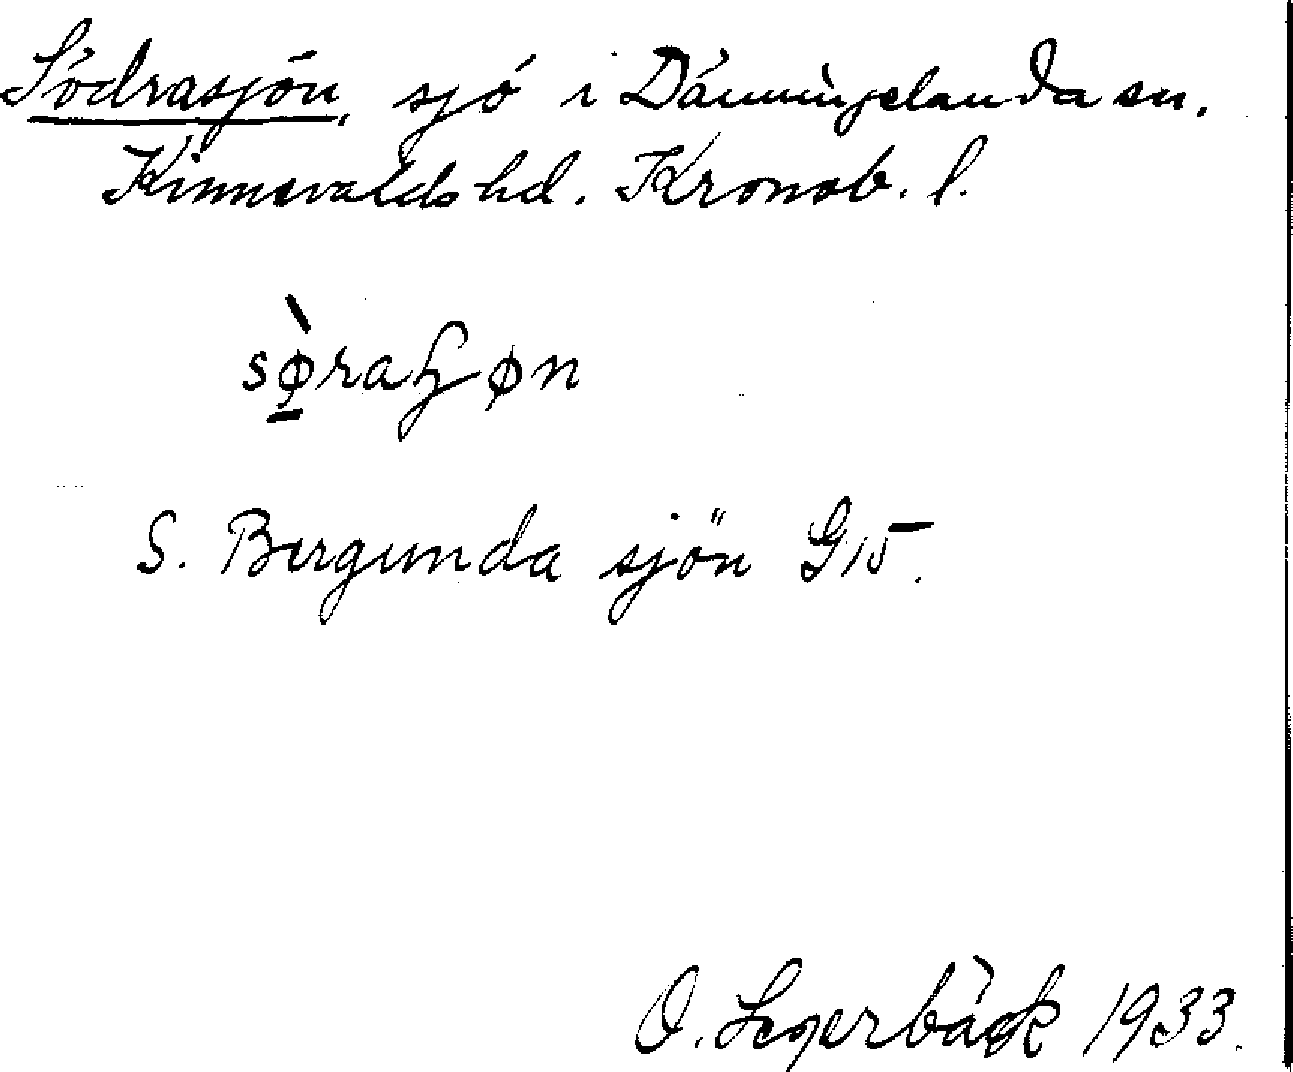 Södrasjön, sjö i Dänningelanda sn.
Kinnevalds hd. Kronob. l.
sø̱̀raɧøn
S. Bergunda sjön G15.
O. Legerbäck 1933.